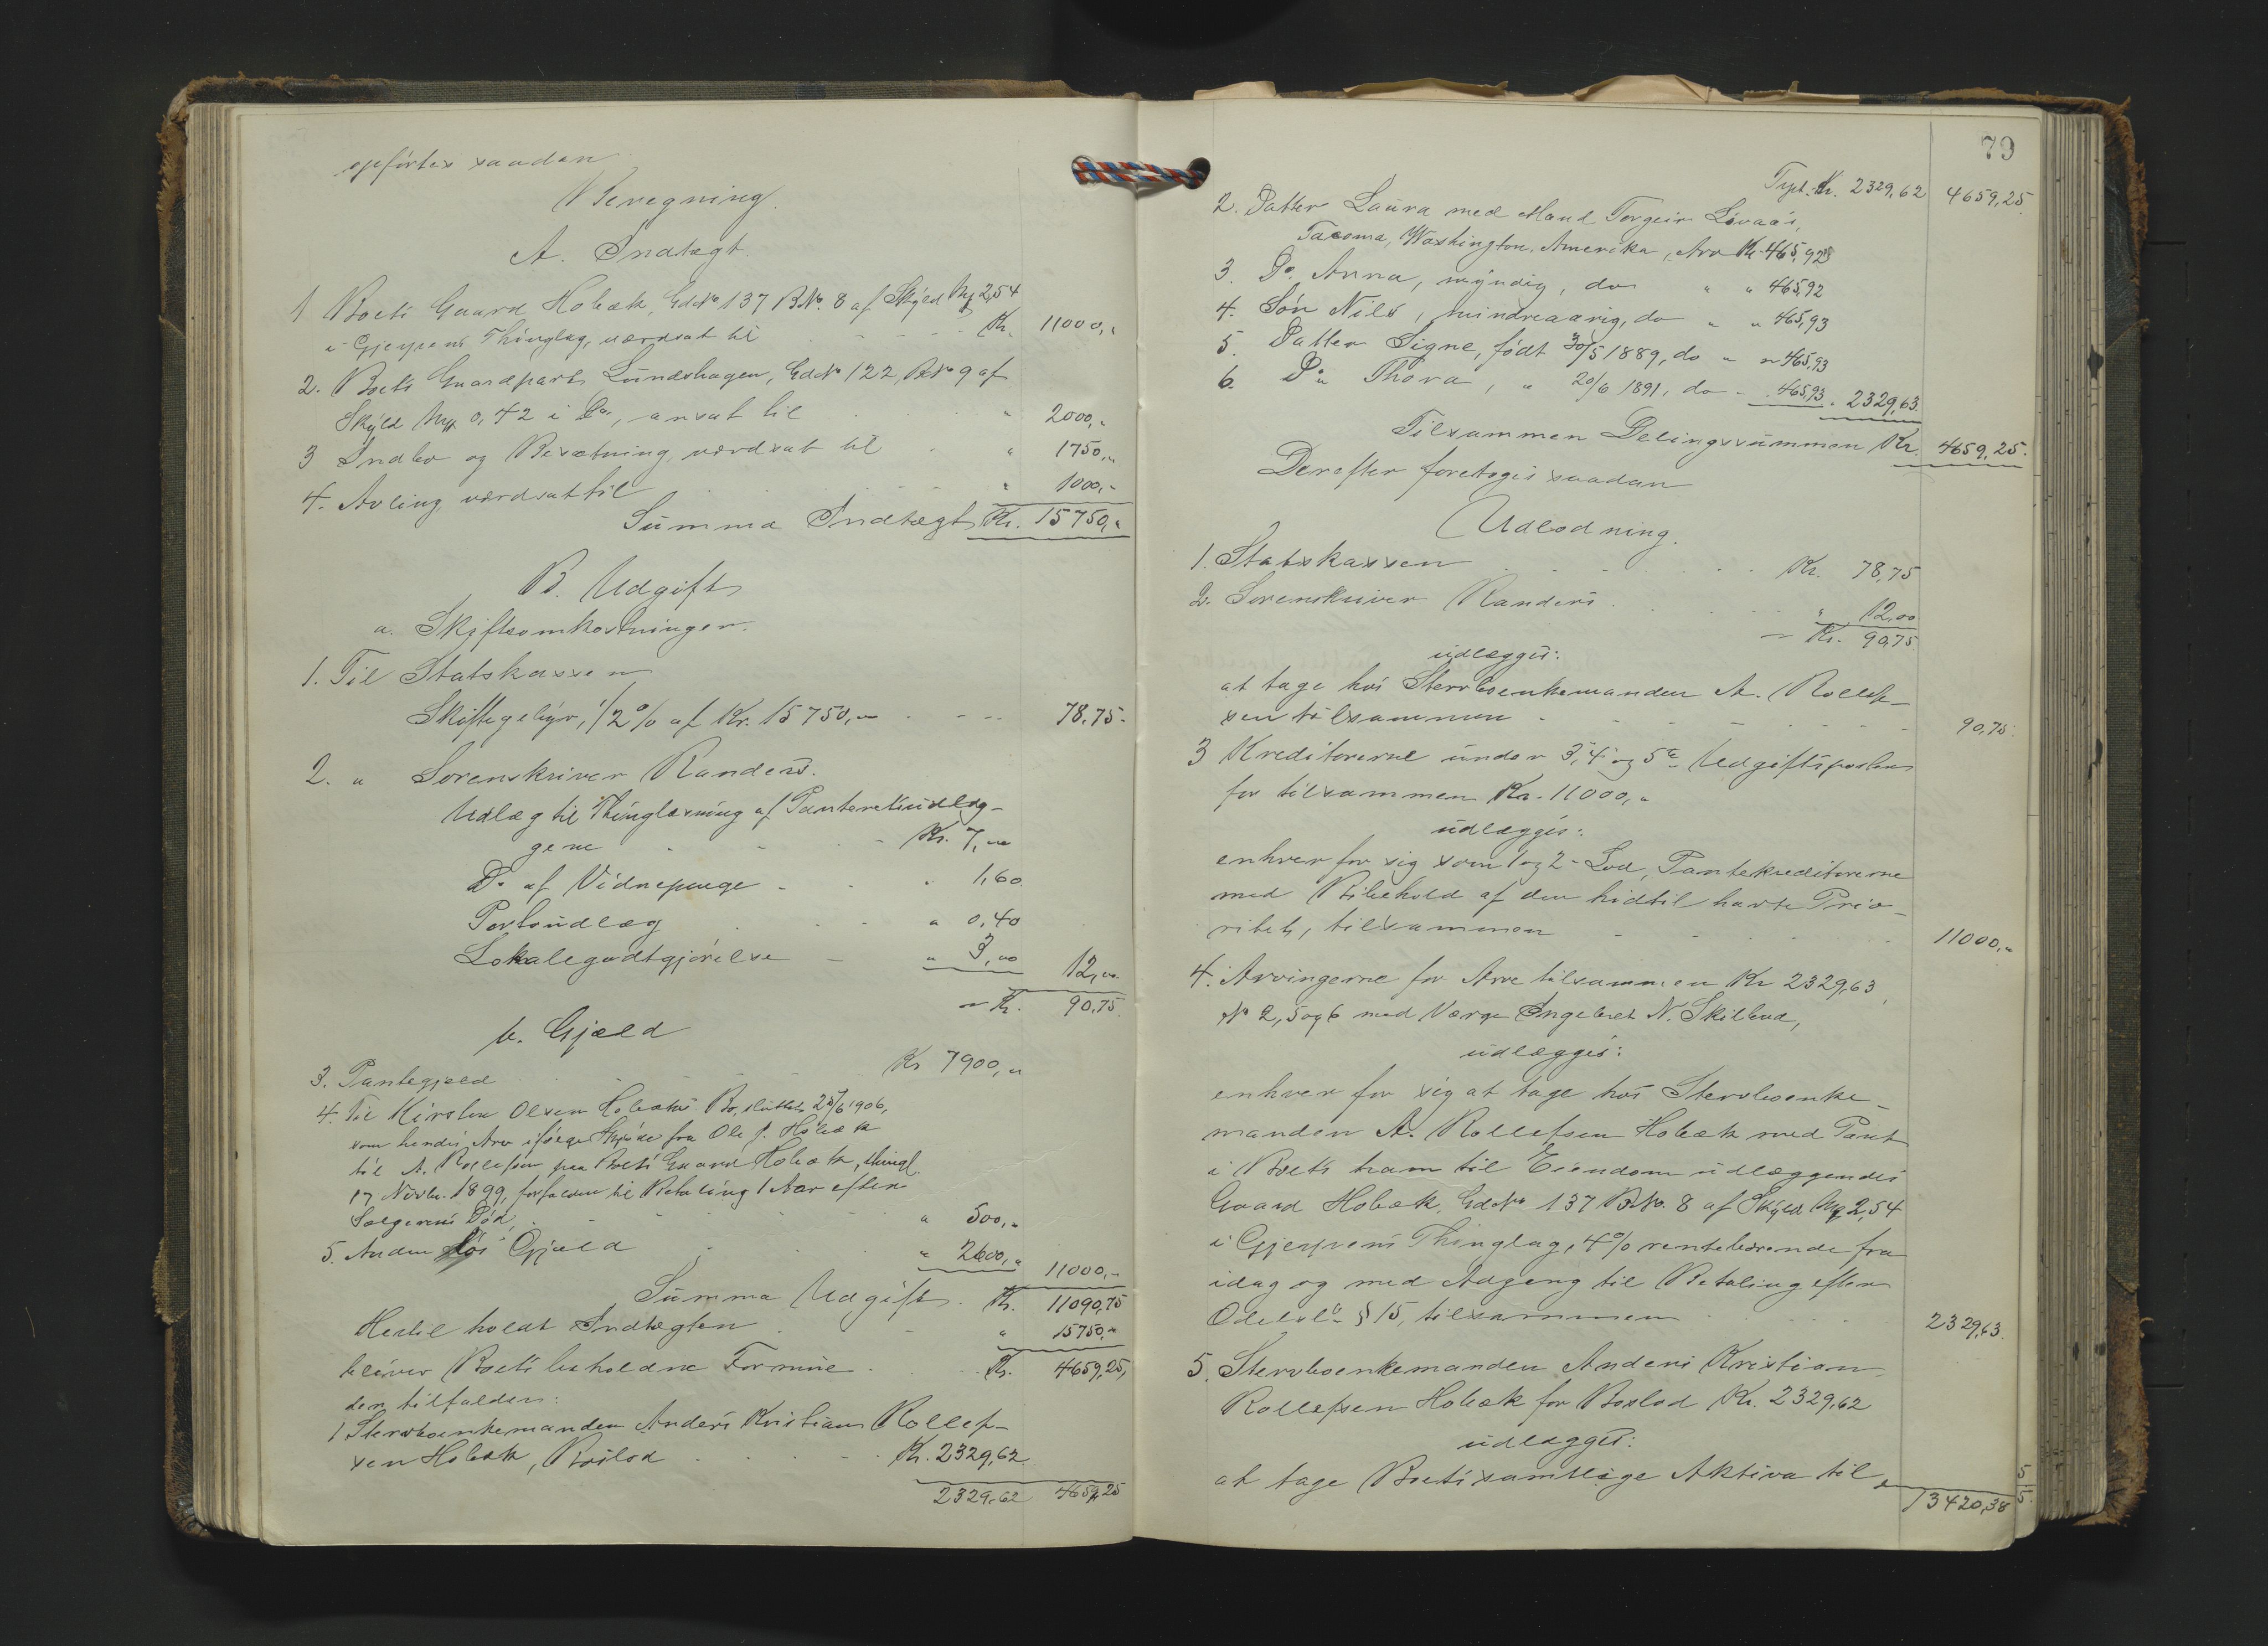 opførtes saadan
Beregning.
A. Indtægt.
1 Boets Gaard Hobæk, Gd.No 137 B.No. 8 af Skyld Mk 2,54
i Gjerpens Thinglag, værdsat til Kr. 11000,"
2. Boets Gaardpart Lundshagen, Gd.No 122, B.No 9 af
Skyld Mk 0,42 i Do, ansat til " 2000,"
3 Indbo og Besætning, værdsat til " 1750,"
4. Avling, værdsat til " 1000,-
Summa Indtægt Kr. 15750,"
B. Udgift
a. Skifteomkostninger.
1. Til Statskassen
Skiftegebyr, 1/2 % af Kr. 15750,- 78,75.
2. " Sorenskriver Randers.
Udlæg til Thinglæsning af Panteretsudlæg-
gene Kr. 7,00
Do af Vidnepenge " 1,60
Portoudlæg " 0,40
Lokalegodtgjørelse " 3,00 12,00.
Kr. 90,75.
b. Gjæld
3. Pantegjæld Kr 7900,"
4. Til Kirsten Olsen Hobæks Bo, sluttet 25/6 1906,
som hendes Arv ifølge Skjøde fra Ole J. Hobæk
til A. Rollefsen paa Boets Gaard Hobæk, thingl.
17 Novbr. 1899, forfalden til Betaling 1 Aar efter
Sælgerens Død, " 500,-
5. Anden løs Gjæld " 2600,- 11000,-
Summa Udgift Kr. 11090,75
Hertil holdt Indtægten " 15750,-
bliver Boets beholdne Formue Kr. 4659,25,
der tilfalder:
1 Stervboenkemanden Anders Kristian Rollef-
sen Hobæk, Boslod Kr. 2329,62
2329,62 4659,25
79
Trpt. Kr. 2329,62 4659,25.
2. Datter Laura med Mand Torgeir Løvaas,
Tacoma, Washington, Amerika, Arv Kr. 465,92
3. Do. Anna, myndig, do " " 465,92
4. Søn Nils, mindreaarig, do " " 465,93
5. Datter Signe, født 30/5 1889, do " " 465,93
6. Do Thora, " 20/6 1891, do " 465,93 " 2329,63.
Tilsammen Delingssummen Kr. 4659,25.
Derefter foretoges saadan
Udlodning.
1. Statskassen Kr. 78,75
2. Sorenskriver Randers " 12,00
Kr. 90,75
udlægges:
at tage hos Stervboenkemanden A. Rollef-
sen tilsammen 90,75.
3 Kreditorerne under 3, 4 og 5te Udgiftsposter
for tilsammen Kr. 11000,"
udlægges:
enhver for sig som 1 og 2 - Lod, Pantekreditorerne
med Bibehold af den hidtil havte Prio-
ritet, tilsammen 11000,"
4. Arvingerne for Arv tilsammen Kr 2329,63,
No 2, 5 og 6 med Værge Ingebret N. Skilbred,
udlægges:
enhver for sig at tage hos Stervboenke-
manden A. Rollefsen Hobæk med Pant
i Boets ham til Eiendom udlæggendes
Gaard Hobæk, Gd.No 137 B.No. 8 af Skyld Mk 2,54
i Gjerpens Thinglag, 4 % rentebærende fra
idag og med Adgang til Betaling efter
Odelsl. § 15, tilsammen 2329,63.
5. Stervboenkemanden Anders Kristian
Rollefsen Hobæk for Boslod Kr. 2329,62
udlægges:
at tage Boets samtlige Aktiva til
13420,38